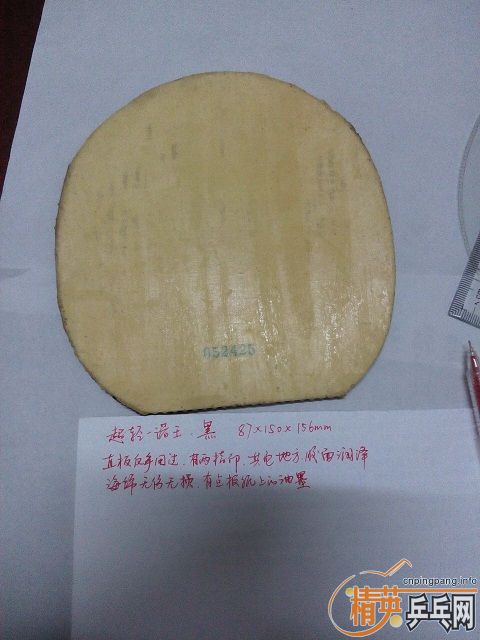 052425
超轻一诺王.黑 87×150×156mm
直板反手用过,有两指印,其它地方胶面润泽
海绵无伤无损,有点报纸上的油墨
cnpingpang.info
精英乒乓网